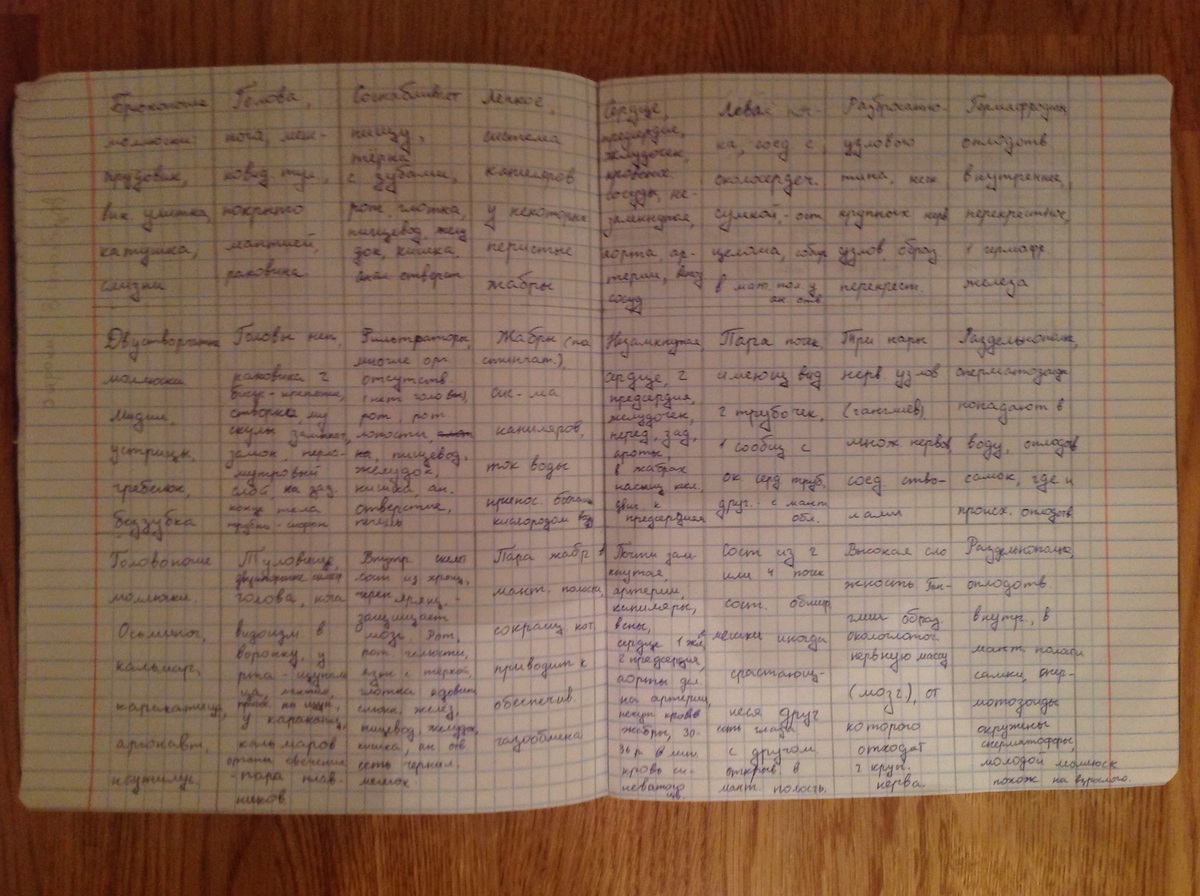 Брюхоногие
моллюски
прудовик,
вин. улитка,
катушка,
слизни
Голова,
нога, меш-
ковид. тул.,
покрыто
мантией,
раковина
Соскабливают
пищу,
тёрка
с зубами,
рот, глотка,
пищевод, желу
док, кишка,
анал. отверст
Легкое,
система
капиляров
у некоторых
перистые
жабры
Сердце,
предсердие,
желудочек,
кровенос.
сосуды, не-
замкнутая,
аорта, ар-
терии,
сосуд
Левая поч-
ка, соед с
околосердеч.
сумкой, - ост
целома,
в мант. пол. у
ан. отв
Разбросанно-
узлового
типа, неск
крупных нерв
узлов, образ
перекрест
Гермафродиты
оплодотв
внутреннее,
перекрестное,
1 гермафр.
железа
Двустворчатые
моллюски
мидии,
устрицы,
гребешок,
беззубка
Головы нет,
раковина 2
створки му
скулы замыкат,
замок, перла-
мутровый
слой, на зад.
конце тела
трубки-сифон
Фильтраторы,
многие орг
отсутств
(нет головы),
рот, рот.
лопасти,
пищевод,
желудок,
кишка, ан.
отверстие,
печень
Жабры (пла
стинчат.),
сис-ма
капиляров,
ток воды
принос. богатую
кислородом воду
Незамкнутая,
сердце, 2
предсердия,
желудочек,
перед, зад,
аорты,
в жабрах
насыщ кис.
движ. к
предсердиям
Пара почек,
имеющ вид
2 трубочек,
1 сообщ с
ок. серд. сумк,
друг. - с мант
обл.
Три пары
нерв. узлов
(ганглиев),
множ нервов,
соед. ство-
лами
Раздельнополые,
сперматозоиды
попадают в
воду, оплодотв
самок, где и
происх. оплодотв
Головоногие
моллюски
Осьминог,
кальмар,
каракатица,
аргонавт,
наутилус
Туловище,
голова, нога
видоизм в
воронку, у
рта - щупаль
ца, мантия,
у каракатиц,
кальмаров
органы свечения
- пара плав-
ников
Внутр. скелет
сост из хрящ,
череп хрящ. -
защищает
мозг. Рот,
рот. челюсти,
язык с теркой,
глотка, ядовит
слюн. желез,
пищевод, желудок,
кишка, ан отв
есть чернил.
мешок
Пара жабр в
мант. полости,
сокращ кот.
приводит к
обеспечив
газообмена
Почти зам-
кнутая,
артерии,
капиляры,
вены,
сердце 1 жел,
2 предсердия,
аорты де
на артерии,
несут кровь в
жабры, 30-
36 р в мин.
кровь си-
неватого
цв.
Сост из 2
или 4 почек
сост. обшир.
мешки иногда
срастающ-
иеся друг
с другом,
открыв. в
мант. полость.
Высокая сло
жность. Ган-
глии образ.
окологлоточ.
нервную массу
(мозг), от
которого
отходят
2 круп.
нерва
Раздельнополые,
оплодотв.
внутр., в
мант. полости
самки, спер-
матозоиды
окружены
сперматофоры,
молодой моллюск
похож на взрослого.